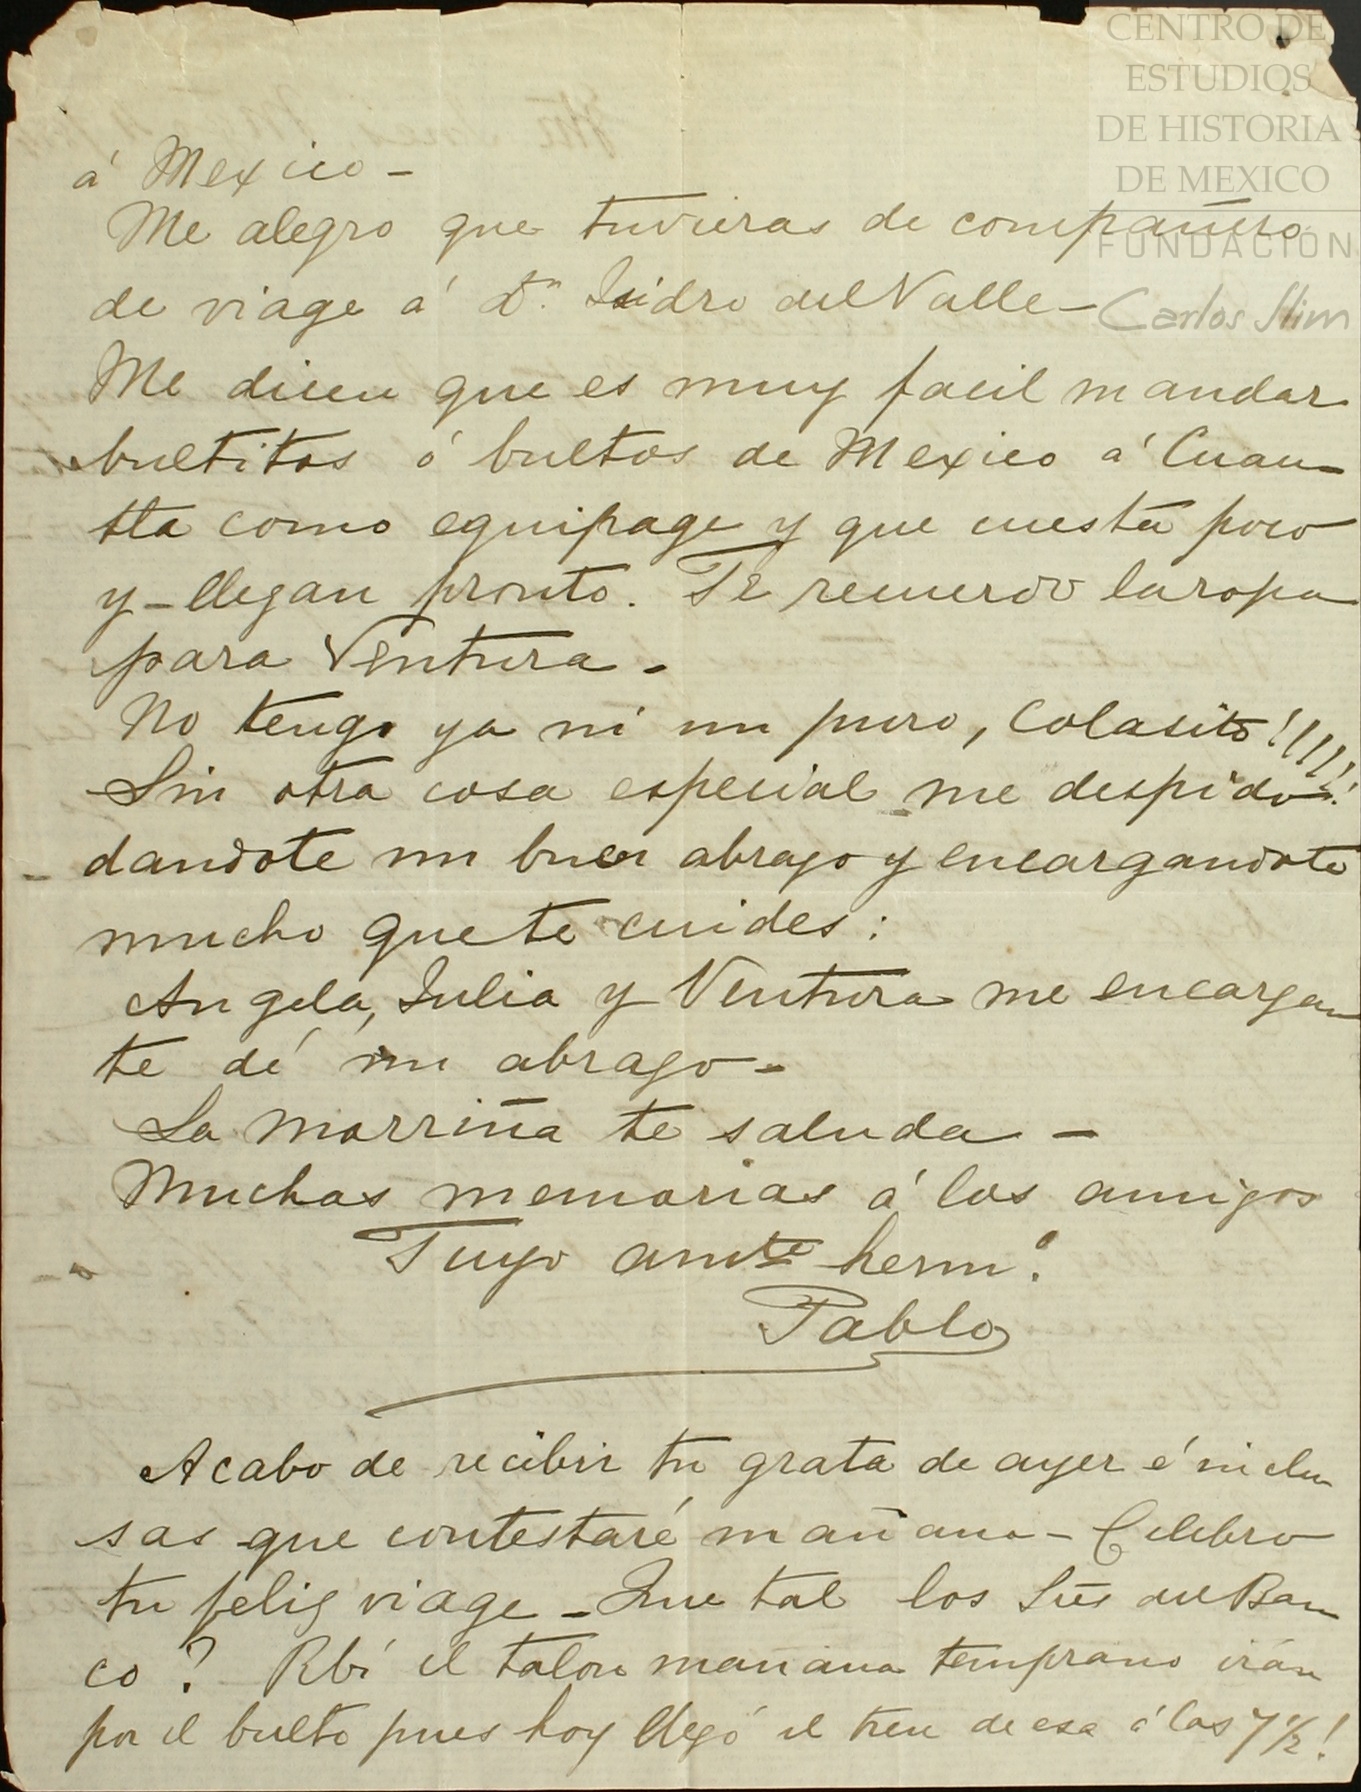 CENTRO DE
ESTUDIOS
DE HISTORIA
DE MEXICO
FUNDACIÓN
Carlos Slim
á Mexico -
Me alegro que tuvieras de compañero
de viage á Dn. Isidro del Valle -
Me dicen que es muy facil mandar
bultitos ó bultos de Mexico á Cuau-
tla como equipage y que cuesta poco
y - llegan pronto. Te recuerdo la ropa
para Ventura -
No tengo ya ni un puro, Colasito!!!!!!
Sin otra cosa especial me despido
dandote un buen abrazo y encargandote
mucho que te cuides:
Angela, Julia y Ventura me encargan
te dé un abrazo -
La morriña te saluda -
Muchas memorias á los amigos
Tuyo amte hermo.
Pablo
Acabo de recibir tu grata de ayer é inclu
sas que contestaré mañana - Celebro
tu feliz viage - Que tal los Srēs del Ban
co? Rbí el talon mañana temprano irán
por el bulto pues hoy llegó el tren de esa á las 7 1/2!